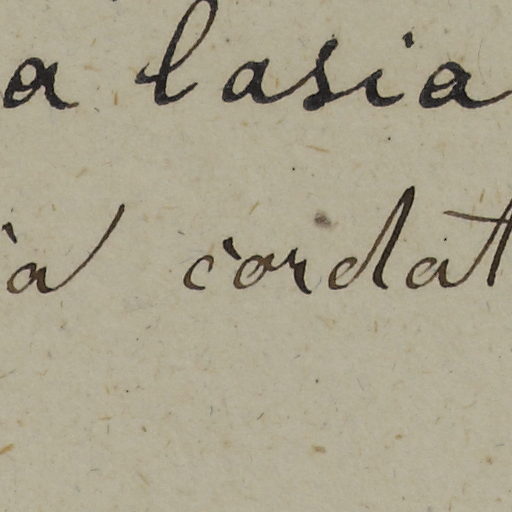 a lasia
ia cordat